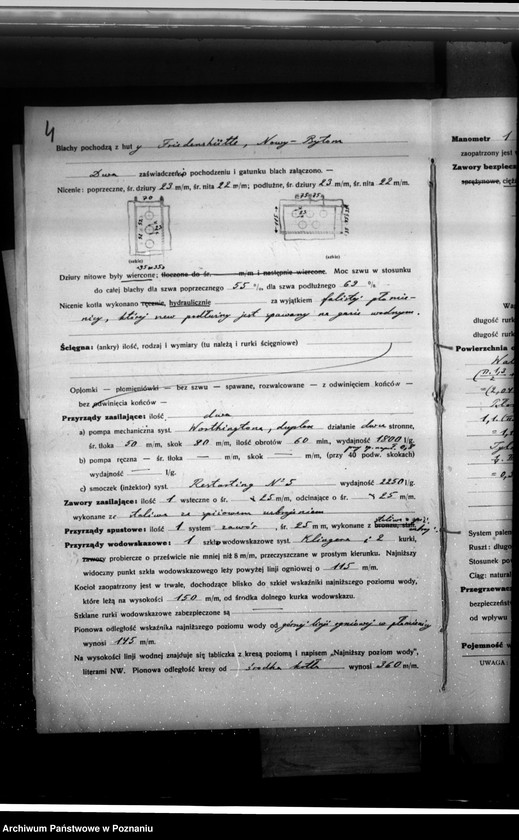 4
Blachy pochodzą z hut y Friedenshütte, Nowy-Bytom
Dwa zaświadczenia o pochodzeniu i gatunku blach załączono. —
Nicenie: poprzeczne, śr. dziury 23 m/m, śr. nita 22 m/m; podłużne, śr. dziury 23 m/m, śr. nita 22 m/m.
70
(szkic)
(szkic)
Dziury nitowe były wiercone; tłoczone do śr. m/m i następnie wiercone. Moc szwu w stosunku
do całej blachy dla szwa poprzecznego 55 %, dla szwa podłużnego 69 %.
Nicenie kotła wykonano ręcznie, hydraulicznie za wyjątkiem falistej płomie-
nicy, której szew podłużny jest spawany na gazie wodnym.
Ścięgna: (ankry) ilość, rodzaj i wymiary (tu należą i rurki ścięgniowe)
Opłomki — płomieniówki — bez szwu — spawane, rozwalcowane — z odwinięciem końców —
bez odwinięcia końców —
Przyrządy zasilające: ilość dwa
a) pompa mechaniczna syst. Worthingtona, duplex — działanie dwu stronne,
śr. tłoka 50 m/m, skok 80 m/m, ilość obrotów 60 min., wydajność 1800 l/g.
b) pompa ręczna — śr. tłoka — m/m, skok — m/m, (przy 40 podw. skokach)
wydajność — l/g.
c) smoczek (inżektor) syst. Restarting Nº 5 wydajność 2250 l/g.
Zawory zasilające: ilość 1 wsteczne o śr. 25 m/m, odcinające o śr. 25 m/m.
wykonane ze staliwa ze spiżowem uzbrojeniem
Przyrządy spustowe: ilość 1 system zawór, śr. 25 m/m, wykonane z bronzu, stali
Przyrządy wodowskazowe: 1 szkło wodowskazowe syst. Klingera i 2 kurki,
zawory probiercze o prześwicie nie mniej niż 8 m/m, przeczyszczane w prostym kierunku. Najniższy
widoczny punkt szkła wodowskazowego leży powyżej linji ogniowej o 115 m/m.
Kocioł zaopatrzony jest w trwałe, dochodzące blisko do szkieł wskaźniki najniższego poziomu wody,
które leżą na wysokości 150 m/m, od środka dolnego kurka wodowskazu.
Szklane rurki wodowskazowe zabezpieczone są —
Pionowa odległość wskaźnika najniższego poziomu wody od górnej linji ogniowej w płomienicy
wynosi 145 m/m.
Na wysokości linji wodnej znajduje się tabliczka z kresą poziomą i napisem „Najniższy poziom wody",
literami NW. Pionowa odległość kresy od środka kotła wynosi 360 m/m.
Manometr 1
zaopatrzony jest
Zawory bezpiecz
sprężynowe, cięż
długość rurk
długość rurki
Powierzchnia o
System palen
Ruszt: długo
Stosunek po
Ciąg: natural
Przegrzewac
bezpieczeńst
od wpływu
Pojemność w
UWAGA:
Archiwum Państwowe w Poznaniu